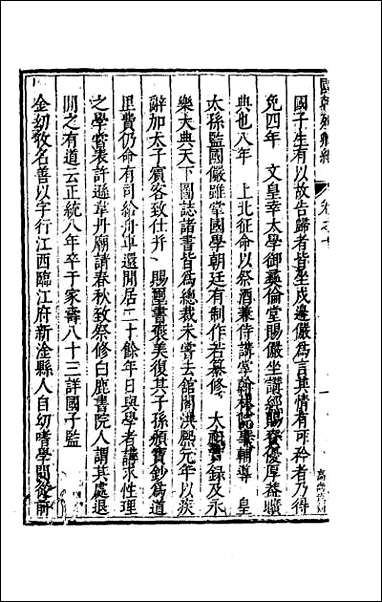 國子生有以故告歸者皆坐戍邊儼爲言其情有可矜者乃得
免四年 文皇幸太學御彛倫堂賜儼坐講經賜賚優厚蓋曠
典也八年 上北征命以祭酒兼侍講掌翰林院事輔導 皇
太孫監國儼雖掌國學朝廷有制作若纂修 太祖實録及永
樂大典天下圖誌諸書皆爲總裁未嘗去館閣洪熙元年以疾
辭加太子賓客致仕并 賜璽書褒美復其子孫頒寶鈔爲道
里費仍命有司給舟車還閒居二十餘年日與學者講求性理
之學嘗表許遜章丹廟請春秋致祭修白鹿書院人謂其處退
閒之有道云正統八年卒于家壽八十三詳國子監
金幼孜名善以字行江西臨江府新淦縣人自幼嗜學問發前